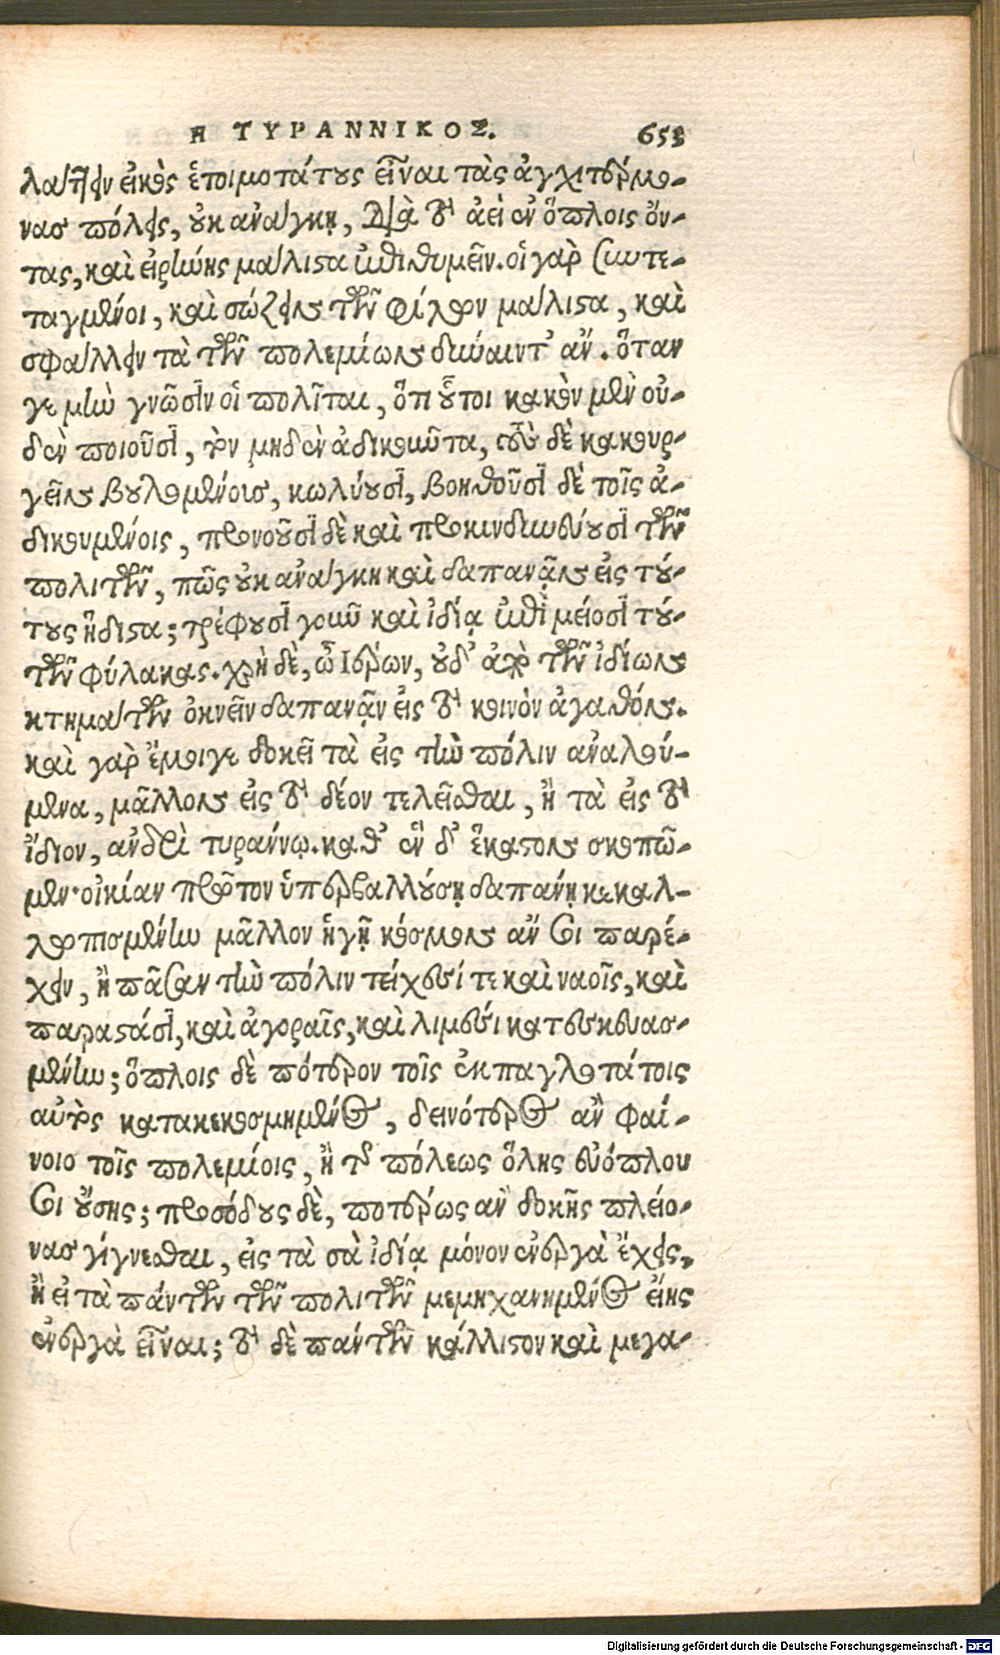 Η ΤΥΡΑΝΝΙΚΟΣ. 653
λάττειν εἰκὸς ἑτοιμοτάτους εἶναι τὰς ἀγχιτέρμο-
νας πόλεις, οὐκ ἀνάγκη, διὰ τὸ ἀεὶ ἐν ὅπλοις ὄν-
τας, καὶ εἰρήνης μάλιστα ἐπιθυμεῖν. οἱ γὰρ συντε-
ταγμένοι, καὶ σώζειν τῶν φίλων μάλιστα, καὶ
σφάλλειν τὰ τῶν πολεμίων δύναιντ' ἄν. ὅταν
γε μὴν γνῶσιν οἱ πολῖται, ὅτι οὗτοι κακὸν μὲν οὐ-
δὲν ποιοῦσι, τὸν μηδὲν ἀδικοῦντα, τοὺς δὲ κακουρ-
γεῖν βουλομένοις, κωλύουσι, βοηθοῦσι δὲ τοῖς ἀ-
δικουμένοις, προνοοῦσι δὲ καὶ προκινδυνεύουσι τῶν
πολιτῶν, πῶς οὐκ ἀνάγκη καὶ δαπανᾶν εἰς τού-
τους ἥδιστα; τρέφουσι γοῦν καὶ ἰδίᾳ ἐπὶ μείοσι τού-
των φύλακας. χρὴ δὲ, ὦ Ἱέρων, οὐδ' ἀπὸ τῶν ἰδίων
κτημάτων ὀκνεῖν δαπανᾶν εἰς τὸ κοινὸν ἀγαθόν.
καὶ γὰρ ἔμοιγε δοκεῖ τὰ εἰς τὴν πόλιν ἀναλού-
μενα, μᾶλλον εἰς τὸ δέον τελεῖσθαι, ἢ τὰ εἰς τὸ
ἴδιον, ἀνδρὶ τυράννῳ. καθ' ἓν δ' ἕκαστον σκοπῶ-
μεν· οἰκίαν πρῶτον ὑπερβαλλούσῃ δαπάνῃ κεκαλ-
λωπισμένην μᾶλλον ἡγῇ κόσμον ἄν σοι παρέ-
χειν, ἢ πᾶσαν τὴν πόλιν τείχεσί τε καὶ ναοῖς, καὶ
παραστάσι, καὶ ἀγοραῖς, καὶ λιμέσι κατεσκευασ-
μένην; ὅπλοις δὲ πότερον τοῖς ἐκπαγλοτάτοις
αὐτὸς κατακεκοσμημένος, δεινότερος ἂν φαί-
νοιο τοῖς πολεμίοις, ἢ τῆς πόλεως ὅλης εὐόπλου
σοι οὔσης; προσόδους δὲ, ποτέρως ἂν δοκῇς πλείο-
νας γίγνεσθαι, εἰς τὰ σὰ ἰδίᾳ μόνον ἐνεργὰ ἔχεις,
ἢ εἰ τὰ πάντων τῶν πολιτῶν μεμηχανημένος εἴης
ἐνεργὰ εἶναι; τὸ δὲ πάντων κάλλιστον καὶ μεγα-
Digitalisierung gefördert durch die Deutsche Forschungsgemeinschaft - DFG